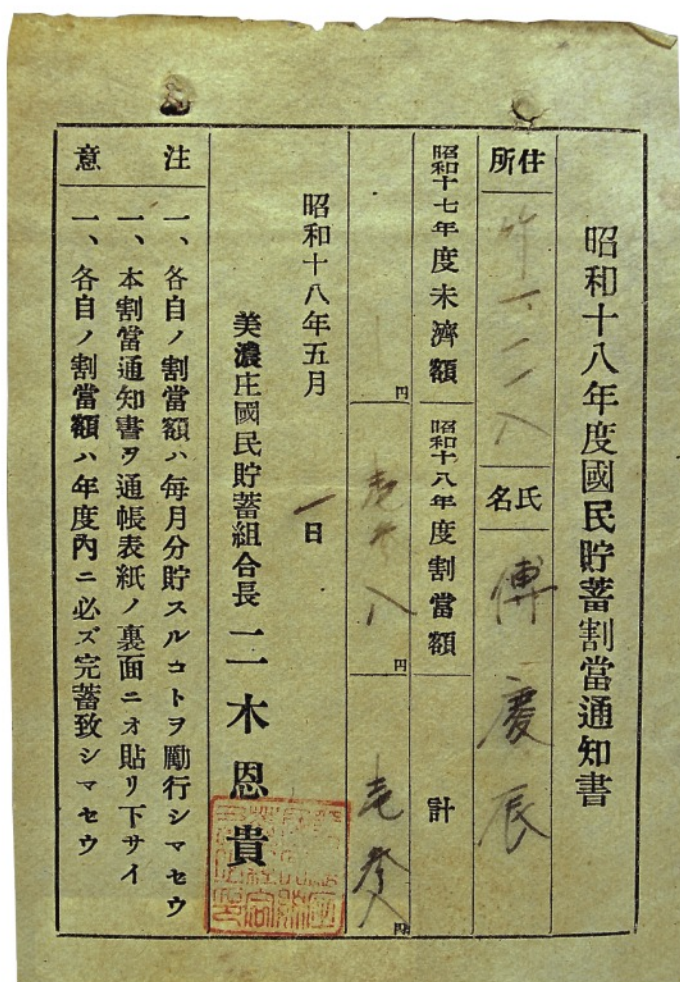 昭和十八年度國民貯蓄割當通知書
住所
竹一、二二八
氏名
傅慶辰
昭和十七年度未濟額
昭和十八年度割當額
計
円
壱参八
円
壱参八
円
昭和十八年五月一日
美濃庄國民貯蓄組合長 二木恩貴
注意
一、各自ノ割當額ハ毎月分貯スルコトヲ勵行シマセウ
一、本割當通知書ヲ通帳表紙ノ裏面ニオ貼リ下サイ
一、各自ノ割當額ハ年度內ニ必ズ完蓄致シマセウ